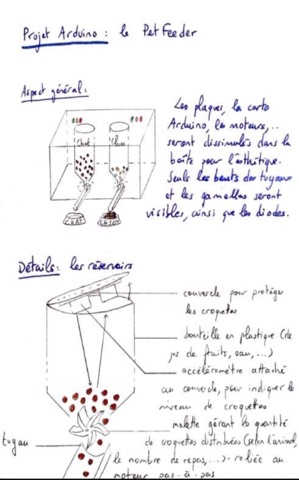 Projet Arduino : le PetFeeder
Aspect général :
Chat
Chien
CHAT
CHIEN
Les plaques, la carte
Arduino, les moteurs,...
seront dissimulés dans la
boîte pour l'esthétique.
Seuls les bouts des tuyaux
et les gamelles seront
visibles, ainsi que les diodes.
Détails : les réservoirs
couvercle pour protéger
les croquettes
bouteille en plastique (de
jus de fruits, eau, ...)
accéléromètre attaché
au couvercle, pour indiquer le
niveau de croquettes
molette gérant la quantité
de croquettes distribuées (selon l'animal,
le nombre de repas, ...) - reliée au
moteur pas-à-pas
tuyau